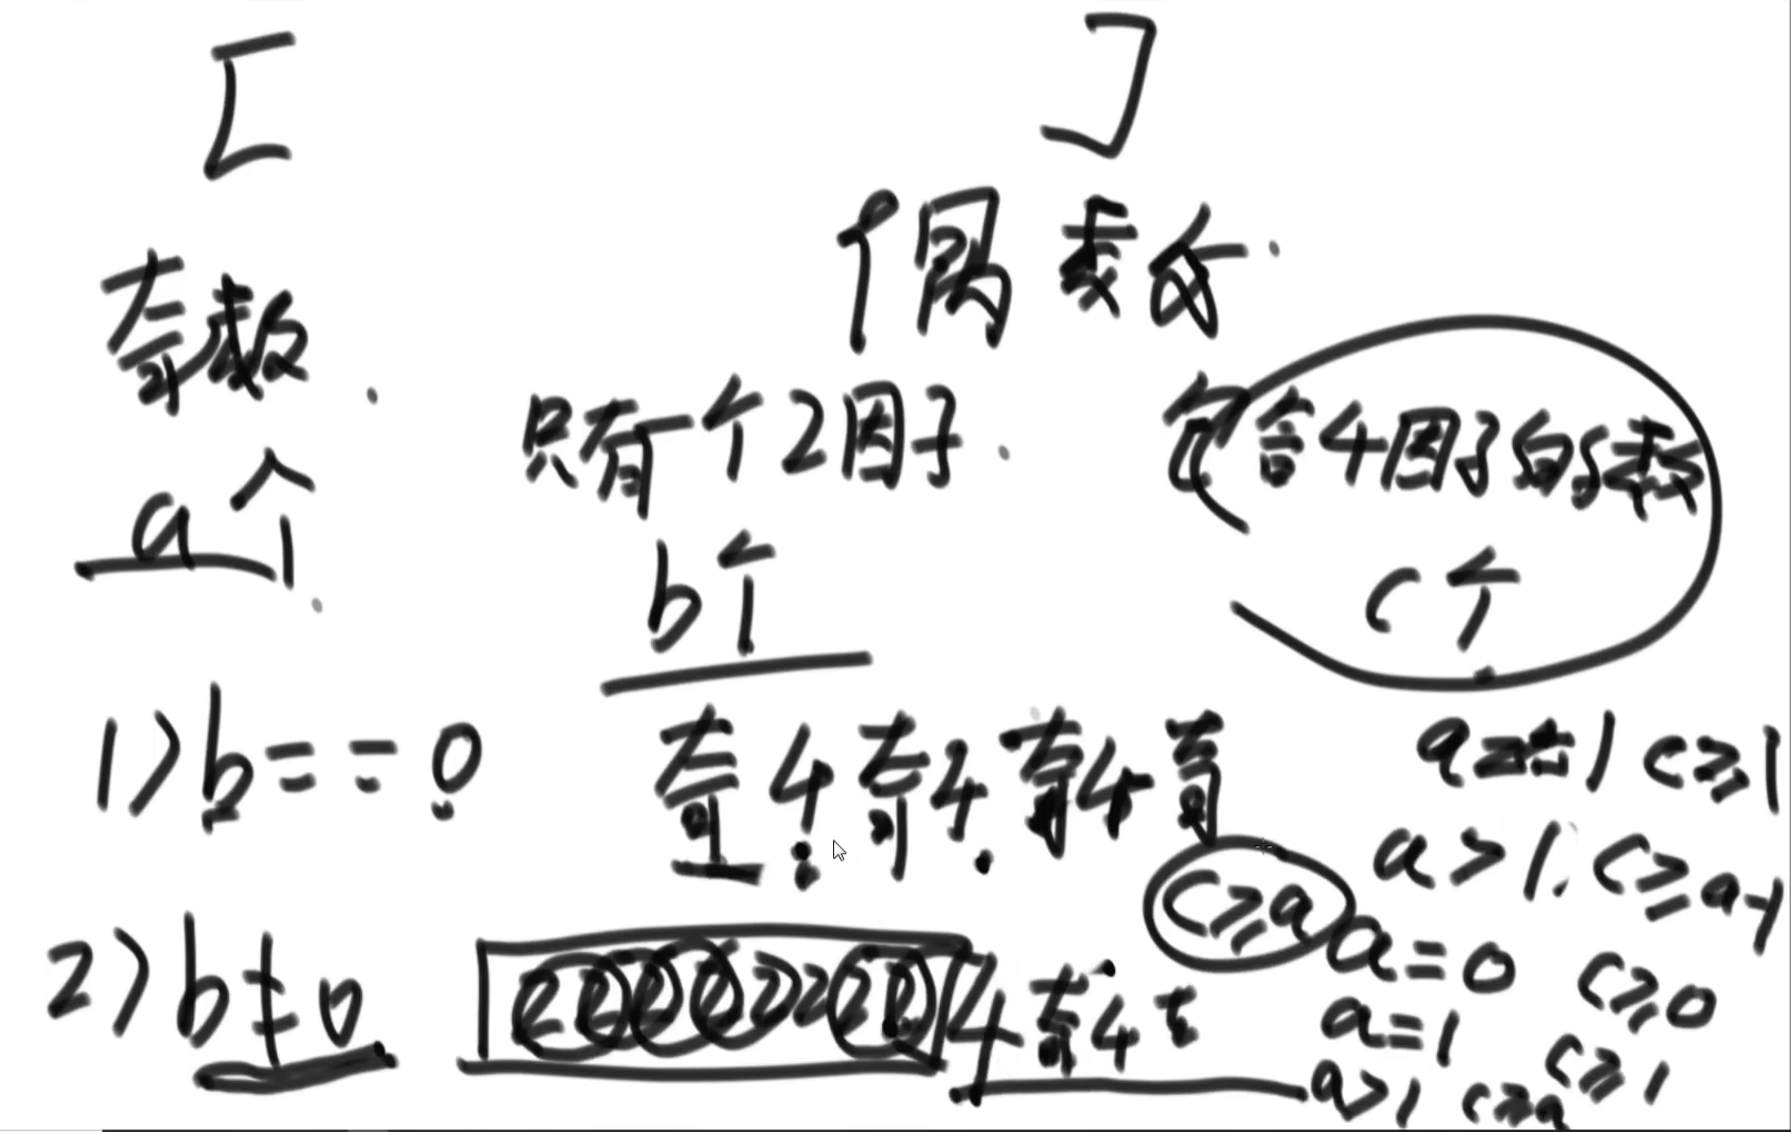 [ ]
奇数 偶数
只有一个2因子 包含4因子的数
a个 b个 c个
1> b == 0 奇4奇4奇4奇 a == 1 c≥1
a>1. c≥a-1
2> b≠0 22222222 4奇4奇 c≥a a=0 c≥0
a=1 c≥1
a>1 c≥a